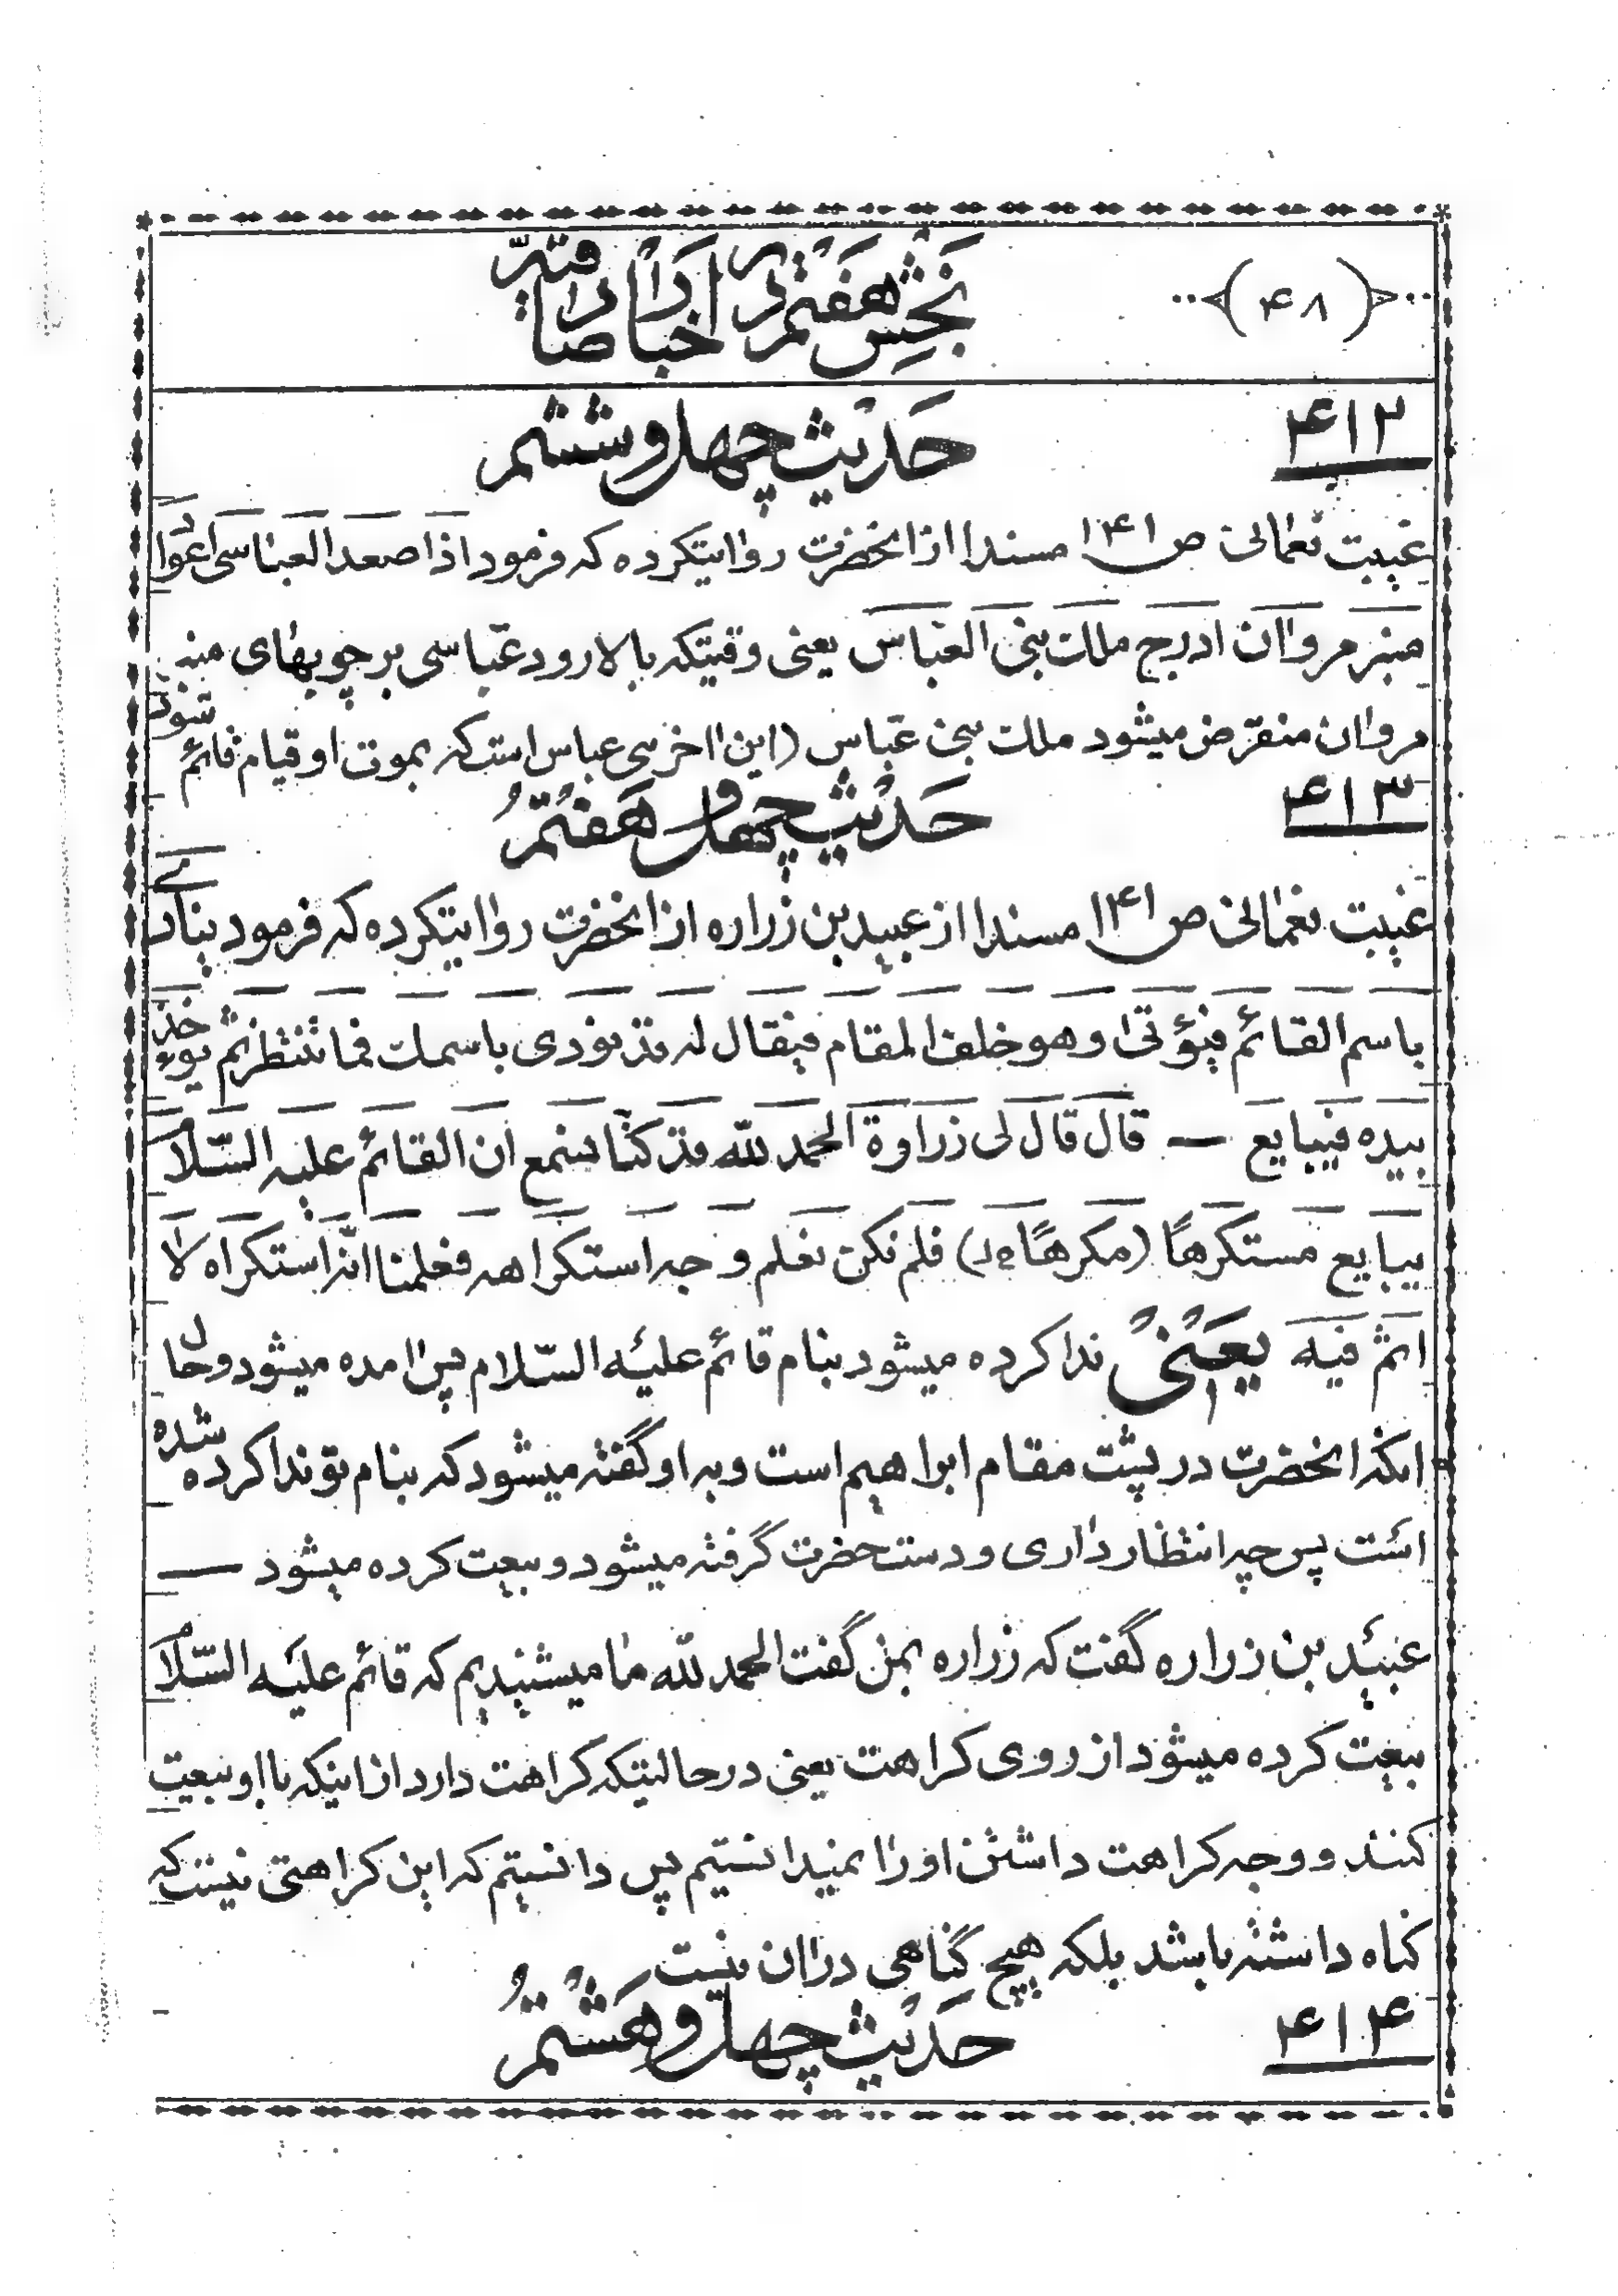 (۴۸) بخش هفتم در اخبار صادقیّه
۴۱۲ حدیث چهل و ششم
غیبت نعمانی ص ۱۴۱ مسندا از انحضرت روایتکرده که فرمود اذا صعد العباسی اعواد
منبر مروان ادرج ملک بنی العباس یعنی وقتیکه بالا رود عباسی بر چوبهای منبر
مروان منقرض میشود ملک بنی عباس (این اخر بنی عباس است که بموت او قیام قائم شود)
۴۱۳ حدیث چهل و هفتم
غیبت نعمانی ص ۱۴۱ مسندا از عبید بن زراره از انحضرت روایتکرده که فرمود ینادی
باسم القائم فیؤتی و هو خلف المقام فیقال له قد نودی باسمک فما تنتظر ثم یوءخذ
بیده فیبایع — قال قال لی زراوة الحمد لله قد کنا نسمع ان القائم علیه السّلام
یبایع مستکرهًا (مکرهًا د۲) فلم نکن نعلم وجه استکراهه فعلمنا انّه استکراه لا
اثم فیه یعنی ندا کرده میشود بنام قائم علیه السّلام پس امده میشود و حال
انکه انحضرت در پشت مقام ابراهیم است و به او گفته میشود که بنام تو ندا کرده شده
است پس چه انتظار داری و دست حضرت گرفته میشود و بیعت کرده میشود —
عبید بن زراره گفت که زراره بمن گفت الحمد لله ما میشنیدیم که قائم علیه السّلام
بیعت کرده میشود از روی کراهت یعنی در حالیتکه کراهت دارد از اینکه با او بیعت
کنند و وجه کراهت داشتن او را نمیدانستیم پس دانستیم که این کراهتی نیست که
کناه داشته باشد بلکه هیچ گناهی در ان نیست
۴۱۴ حدیث چهل و هشتم